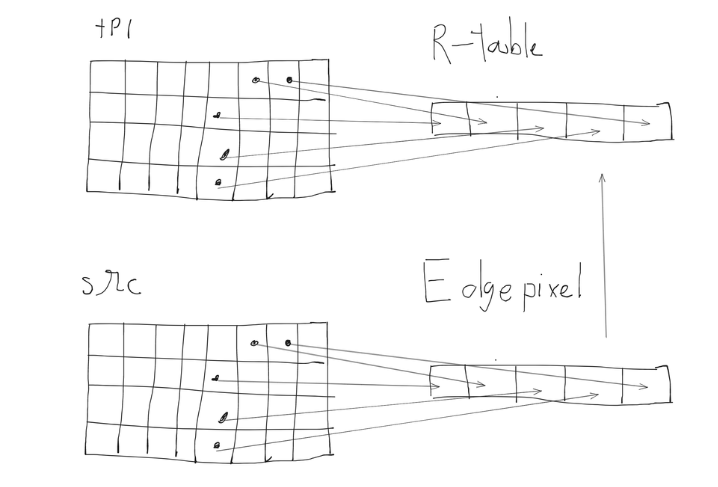 tPl
R-table
src
Edgepixel